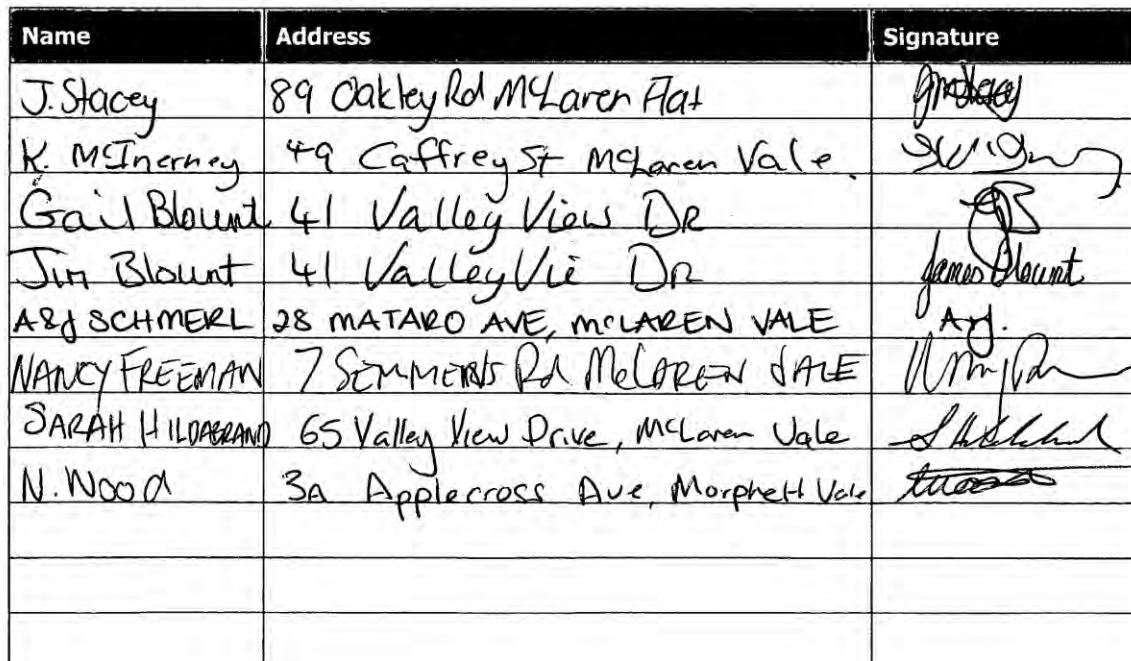 Name Address Signature
J. Stacey 89 Oakley Rd McLaren Flat
K. McInerney 49 Caffrey St McLaren Vale.
Gail Blount 41 Valley View DR GB
Jim Blount 41 Valley Vie DR James Blount
A&J SCHMERL 28 MATARO AVE, McLAREN VALE A&J.
NANCY FREEMAN 7 SEMMENS Rd McLAREN VALE
SARAH HILDABRAND 65 Valley View Drive, McLaren Vale
N. Wood 3A Applecross Ave, Morphett Vale